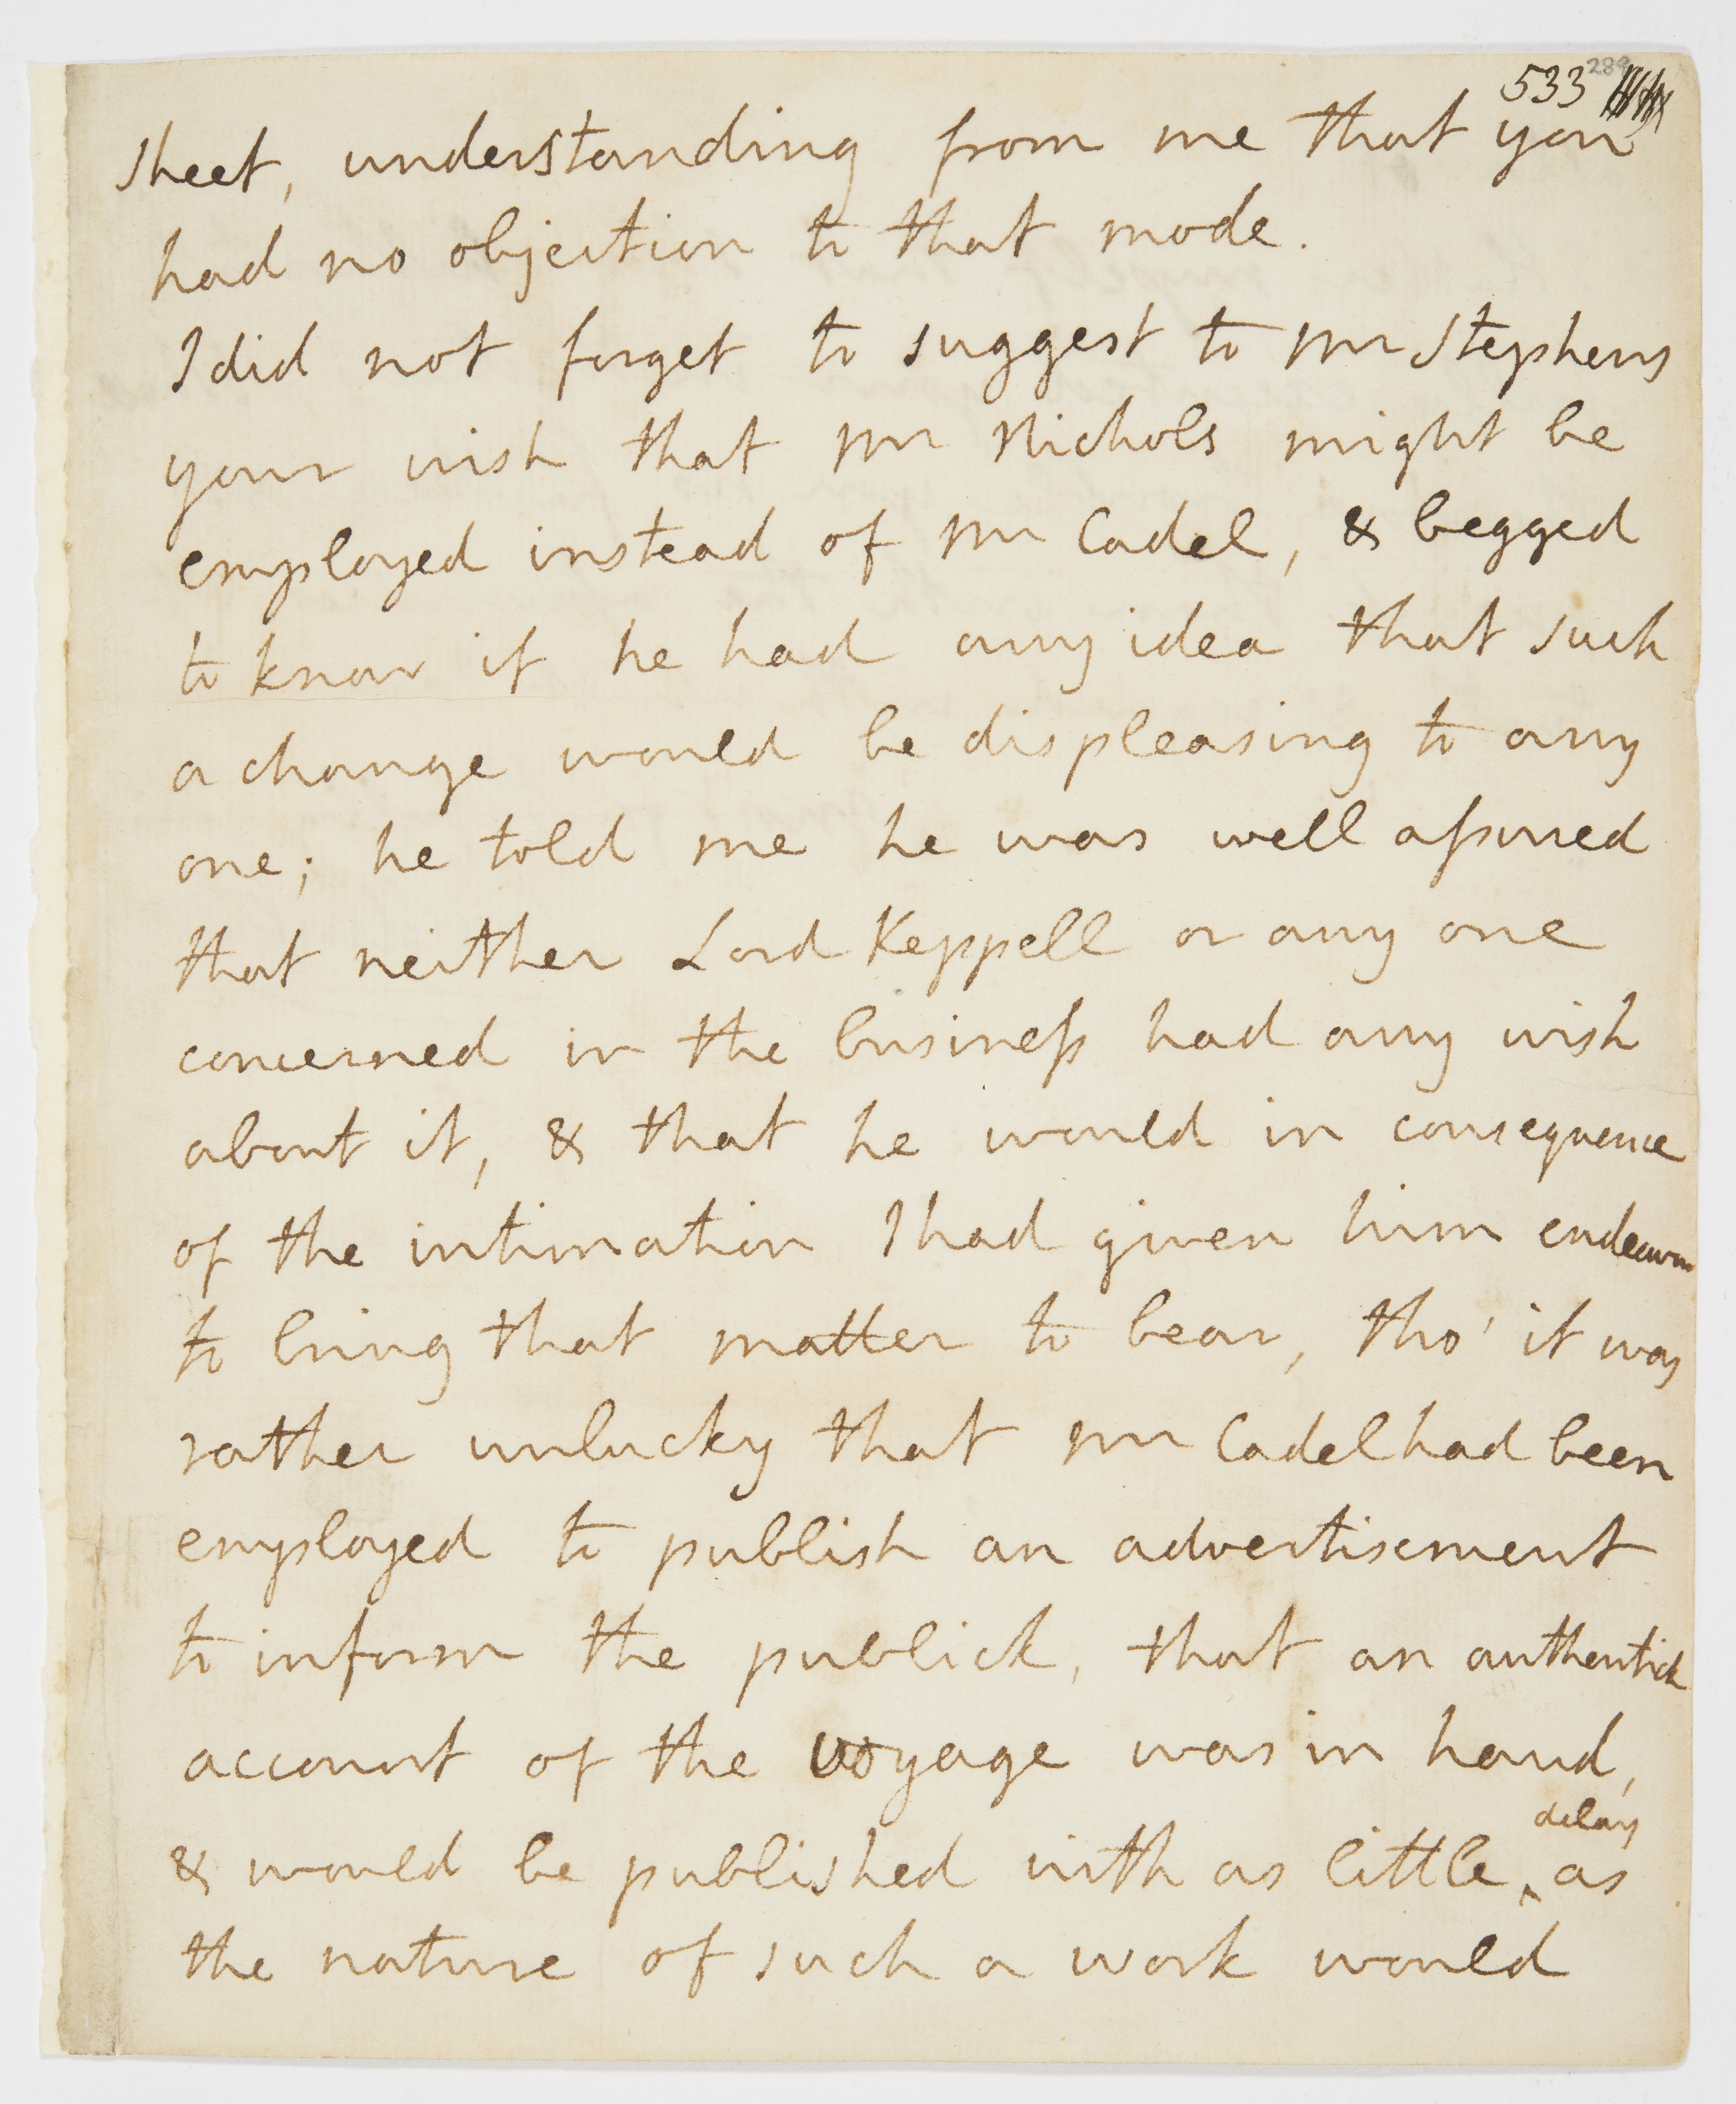 533 289
sheet, understanding from me that you
had no objection to that mode.
I did not forget to suggest to Mr Stephens
your wish that Mr Nichols might be
employed instead of Mr Cadel, & begged
to know if he had any idea that such
a change would be displeasing to any
one; he told me he was well aſsured
that neither Lord Keppell or any one
concerned in the busineſs had any wish
about it, & that he would in consequence
of the intimation I had given him endeavour
to bring that matter to bear, tho' it was
rather unlucky that Mr Cadel had been
employed to publish an advertisement
to inform the publick, that an authentick
account of the voyage was in hand,
& would be published with as little delay as
the nature of such a work would